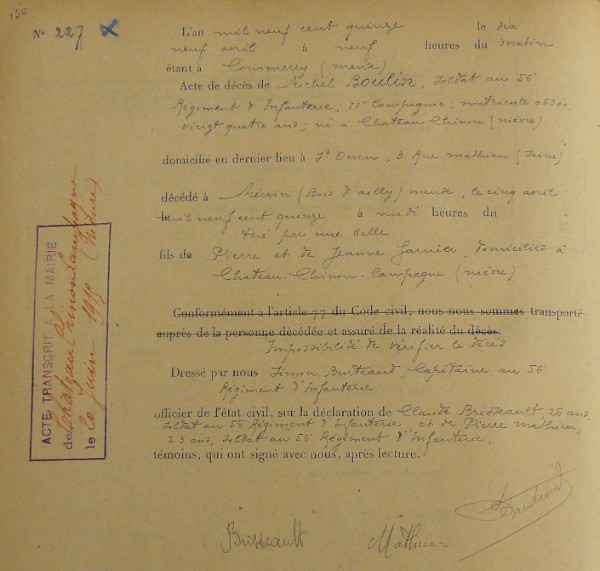 156
N° 227
L'an mil neuf cent quinze le dix
neuf avril à neuf heures du matin
étant à Commercy (meuse)
Acte de décès de Michel Boulin, soldat au 56e
Régiment d'Infanterie, 11e Compagnie; matricule
vingt quatre ans; né à Chateau-Chinon (nièvre)
domicilié en dernier lieu à St Ouen, 3 Rue mathieu (Seine)
décédé à (Bois d'ailly) meuse, le cinq avril
mil neuf cent quinze à midi heures du
tué par une balle
fils de Pierre et de Jeanne Garnier, domiciliés à
Chateau-Chinon-Campagne (nièvre)
Conformément à l'article 77 du Code civil, nous nous sommes transporté
auprès de la personne décédée et assuré de la réalité du décès.
Impossibilité de vérifier le décès
Dressé par nous Simon Capitaine au 56
Régiment d'Infanterie
officier de l'état civil, sur la déclaration de Claude Brisseault, 26 ans,
soldat au 56 Régiment d'Infanterie et de Pierre mathieu,
23 ans, soldat au 56e Régiment d'Infanterie,
témoins, qui ont signé avec nous, après lecture.
Brisseault Mathieu
ACTE TRANSCRIT A LA MAIRIE
de Château Chinon Campagne
(Nièvre)
le 20 Juin 1919